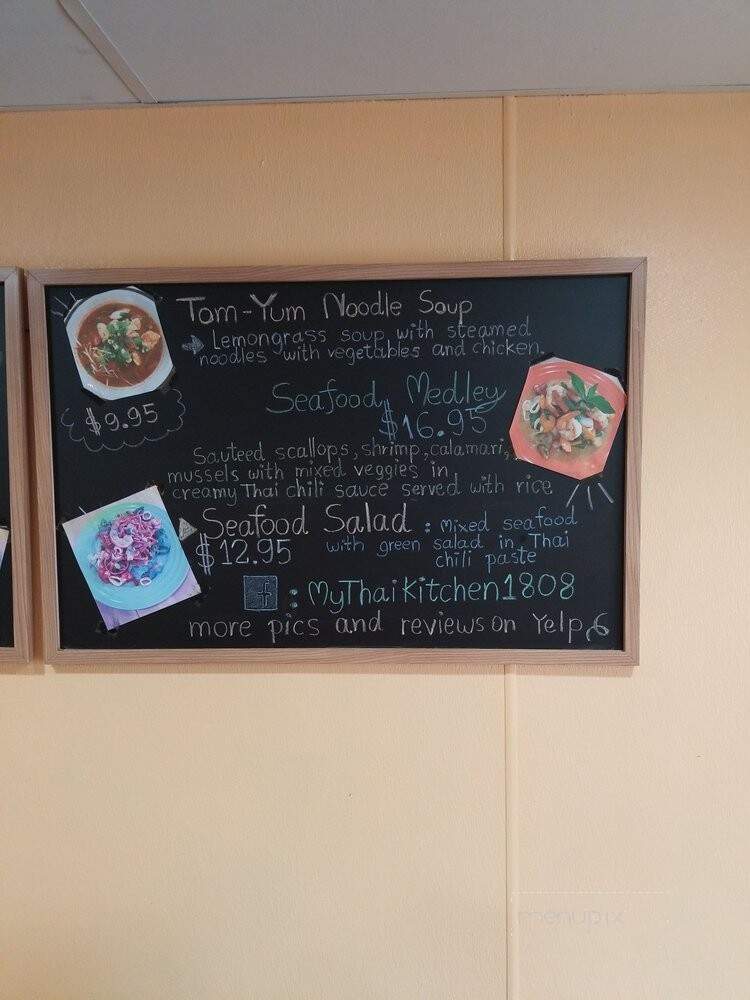 Tom-Yum Noodle Soup
Lemongrass soup with steamed
noodles with vegetables and chicken.
$9.95
Seafood Medley
$16.95
Sauteed scallops, shrimp, calamari,
mussels with mixed veggies in
creamy Thai chili sauce served with rice
Seafood Salad : Mixed seafood
$12.95 with green salad in Thai
chili paste
f : MyThaiKitchen1808
more pics and reviews on Yelp
menupix